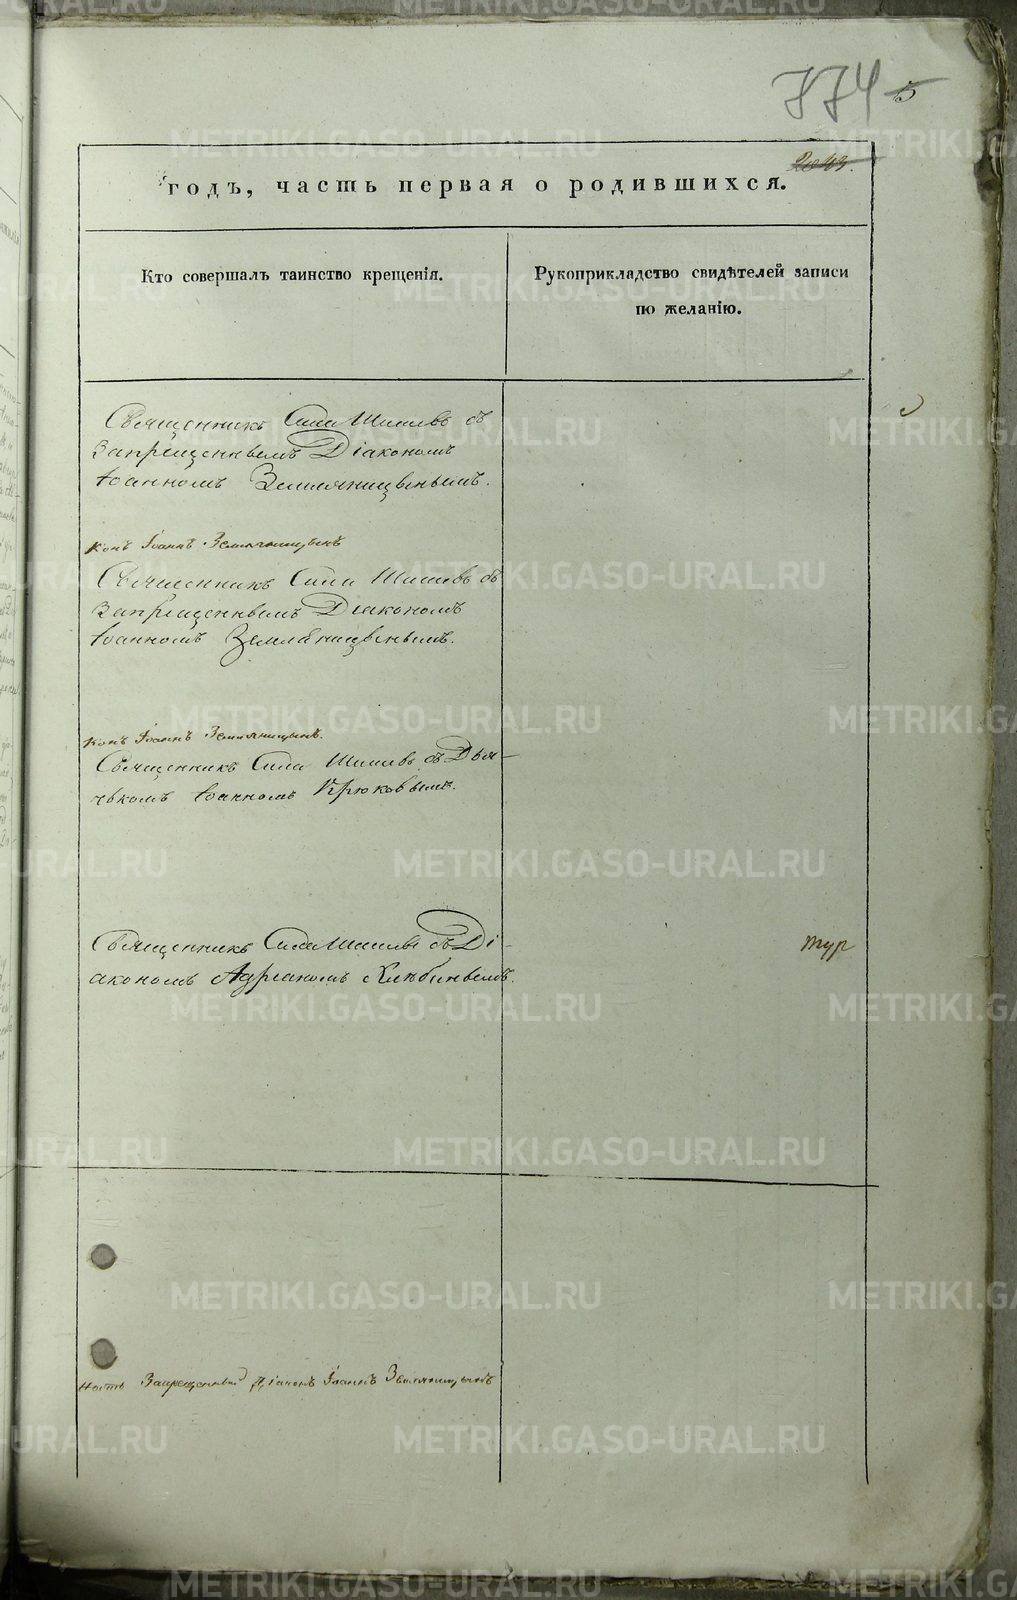 774 5
2043.
годъ, часть первая о родившихся.
Кто совершалъ таинство крещенія.
Рукоприкладство свидѣтелей записи
по желанію.
Священникъ Сила Шишевъ съ
Запрещеннымъ Діакономъ
Іоанномъ Земляницынымъ.
конъ Іоаннъ Земляницынъ
Священникъ Сила Шишевъ съ
Запрещеннымъ Діакономъ
Іоанномъ Земляницынымъ.
конъ Іоаннъ Земляницынъ.
Священникъ Сила Шишевъ съ Дья-
чькомъ Іоанномъ Крюковымъ.
Священникъ Сила Шишевъ съ Ді-
акономъ Адріаномъ Хлѣбинымъ.
тур
ность Запрещенный Діаконъ Іоаннъ Земляницынъ
METRIKI.GASO-URAL.RU